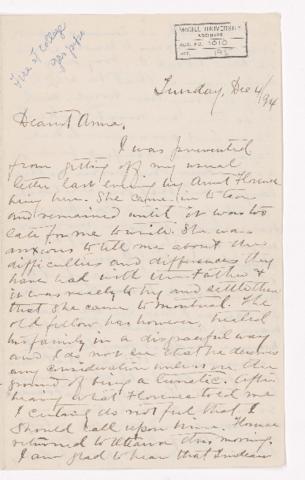 Fire at college
McGILL UNIVERSITY
ARCHIVES
ACC. NO. 1010
REF.
Sunday, Dec 4/94
Dearest Anna,
I was prevented
from getting off my usual
letter last evening by Aunt Florence
being here. She came in to tea
and remained until it was too
late for me to write. She was
anxious to tell me about the
difficulties and differences they
have had with her Father &
it was really to try and settle them
that she came to Montreal. The
old fellow has however, treated
his family in a disgraceful way
and I do not see that he deserves
any consideration unless on the
ground of being a lunatic. After
hearing what Florence told me
I certainly do not feel that I
should call upon him. Florence
returned to Ottawa this morning.
I am glad to hear that